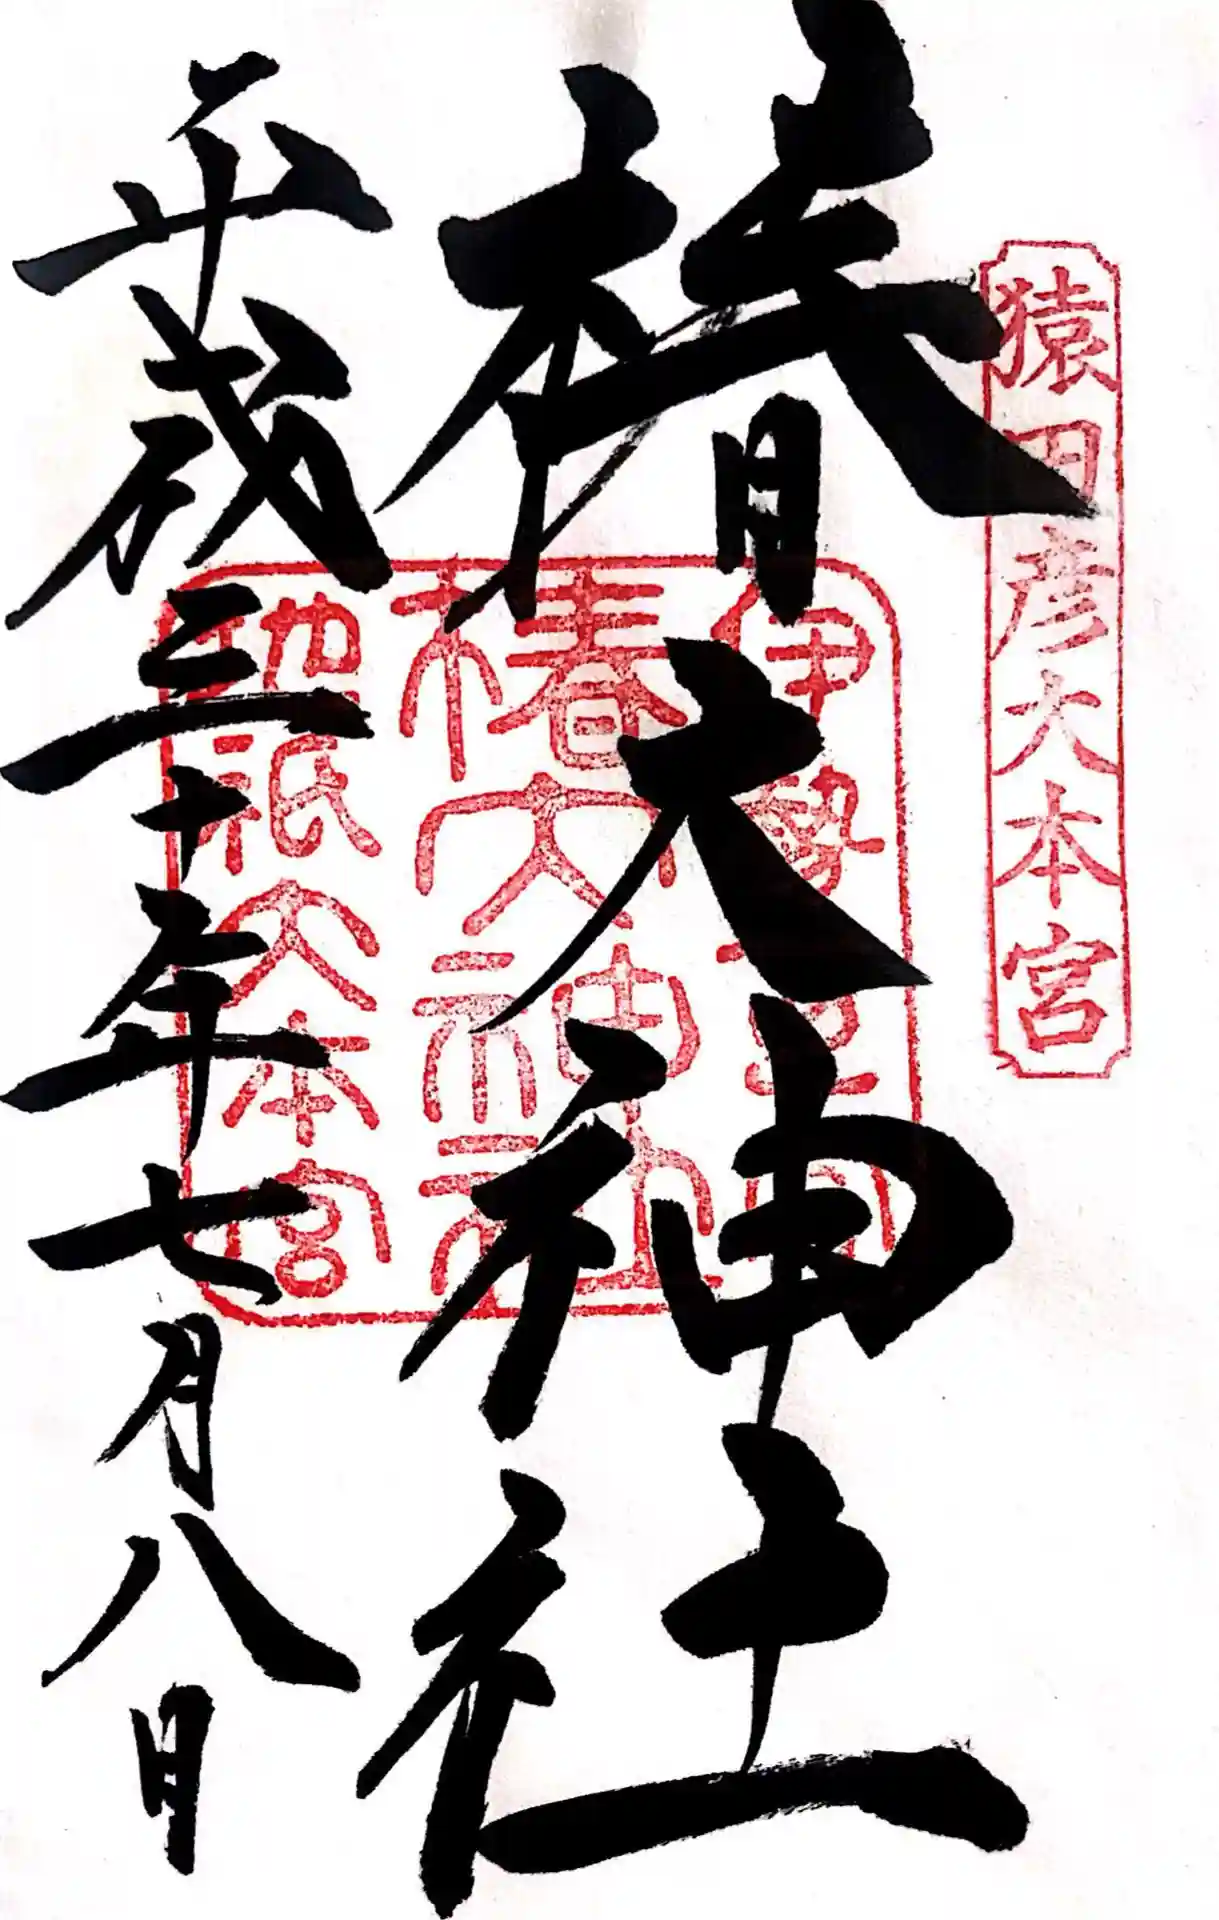 猿田彦大本宮
椿大神社
平成三十年七月八日
伊勢
椿大神社
地祇大本宮